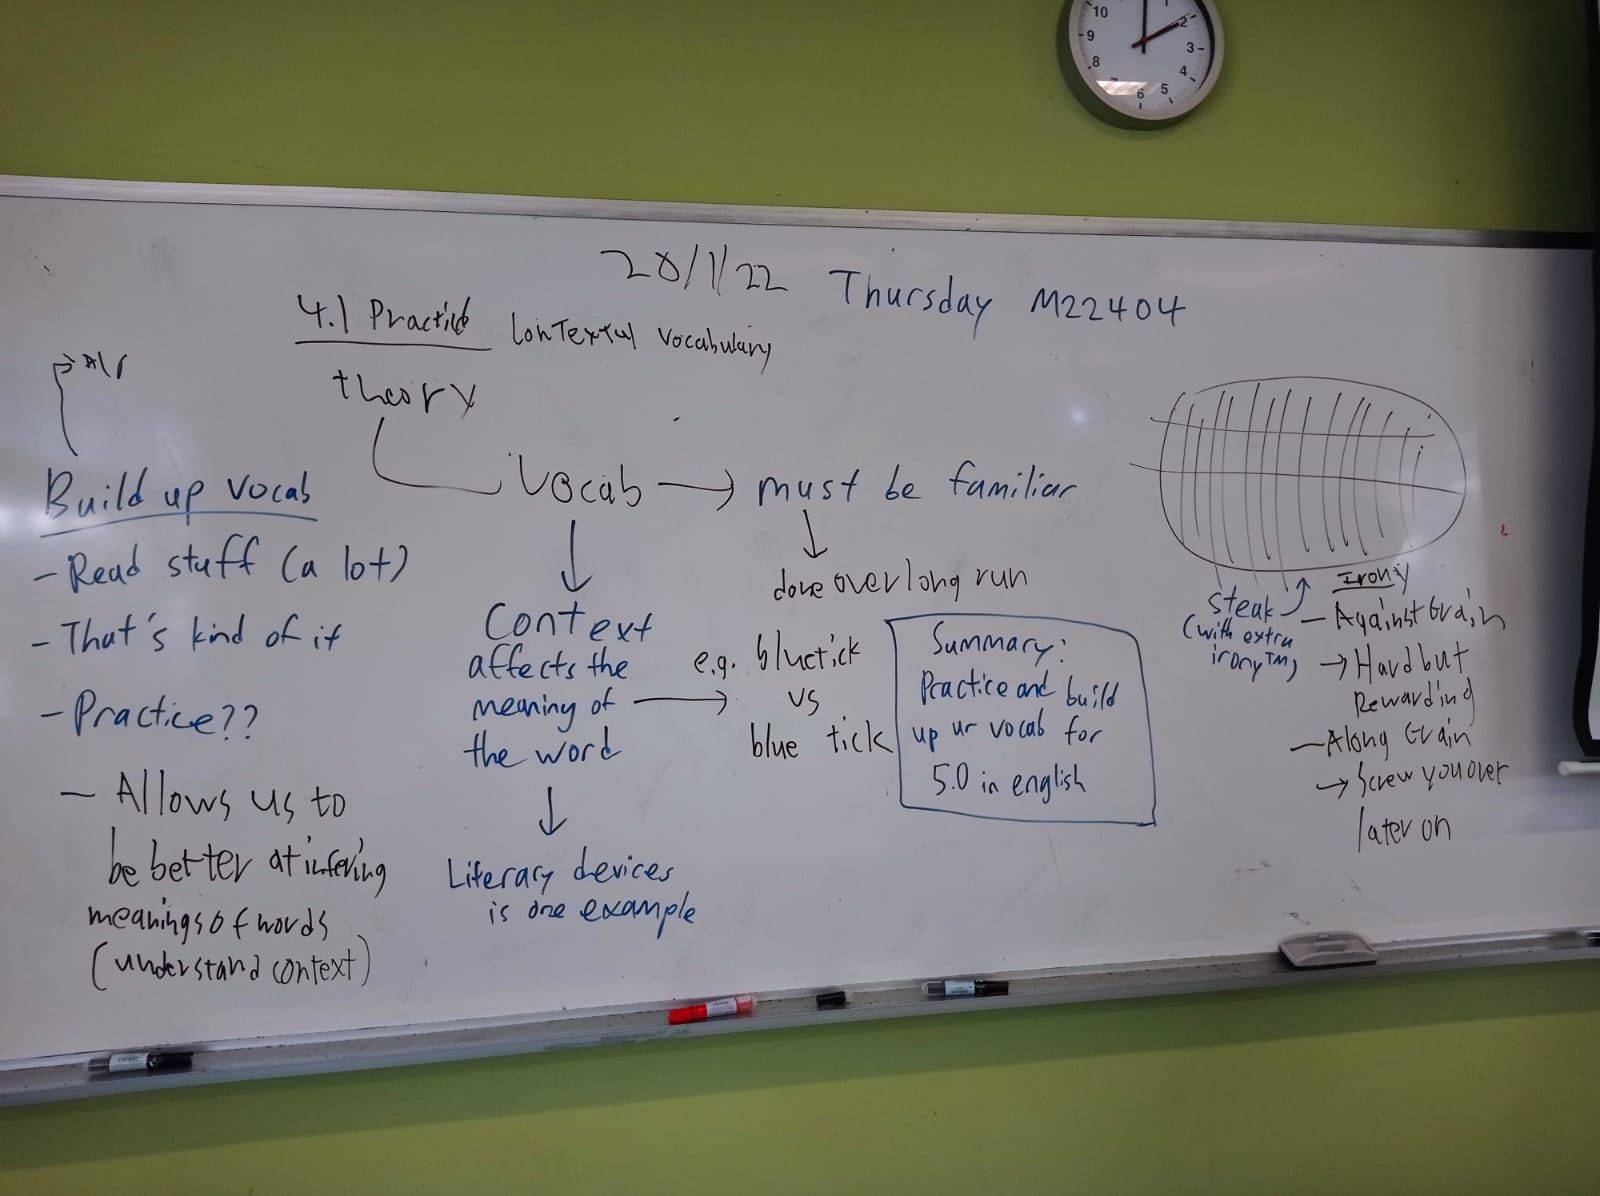 10
1
2
9
3
8
4
7
6
5
20/1/22 Thursday M22404
4.1 Practice Contextual Vocabulary
theory
Build up vocab
- Read stuff (a lot)
- That's kind of it
- Practice??
- Allows us to
be better at infering
meanings of words
(understand context)
Vocab → must be familiar
done over long run
Context
affects the
meaning of
the word
→ e.g. bluetick
vs
blue tick
Literary devices
is one example
Summary:
Practice and build
up ur vocab for
5.0 in english
steak
(with extra
irony™)
Irony
- Against Grain
→ Hard but
Rewarding
- Along Grain
→ Screw you over
later on